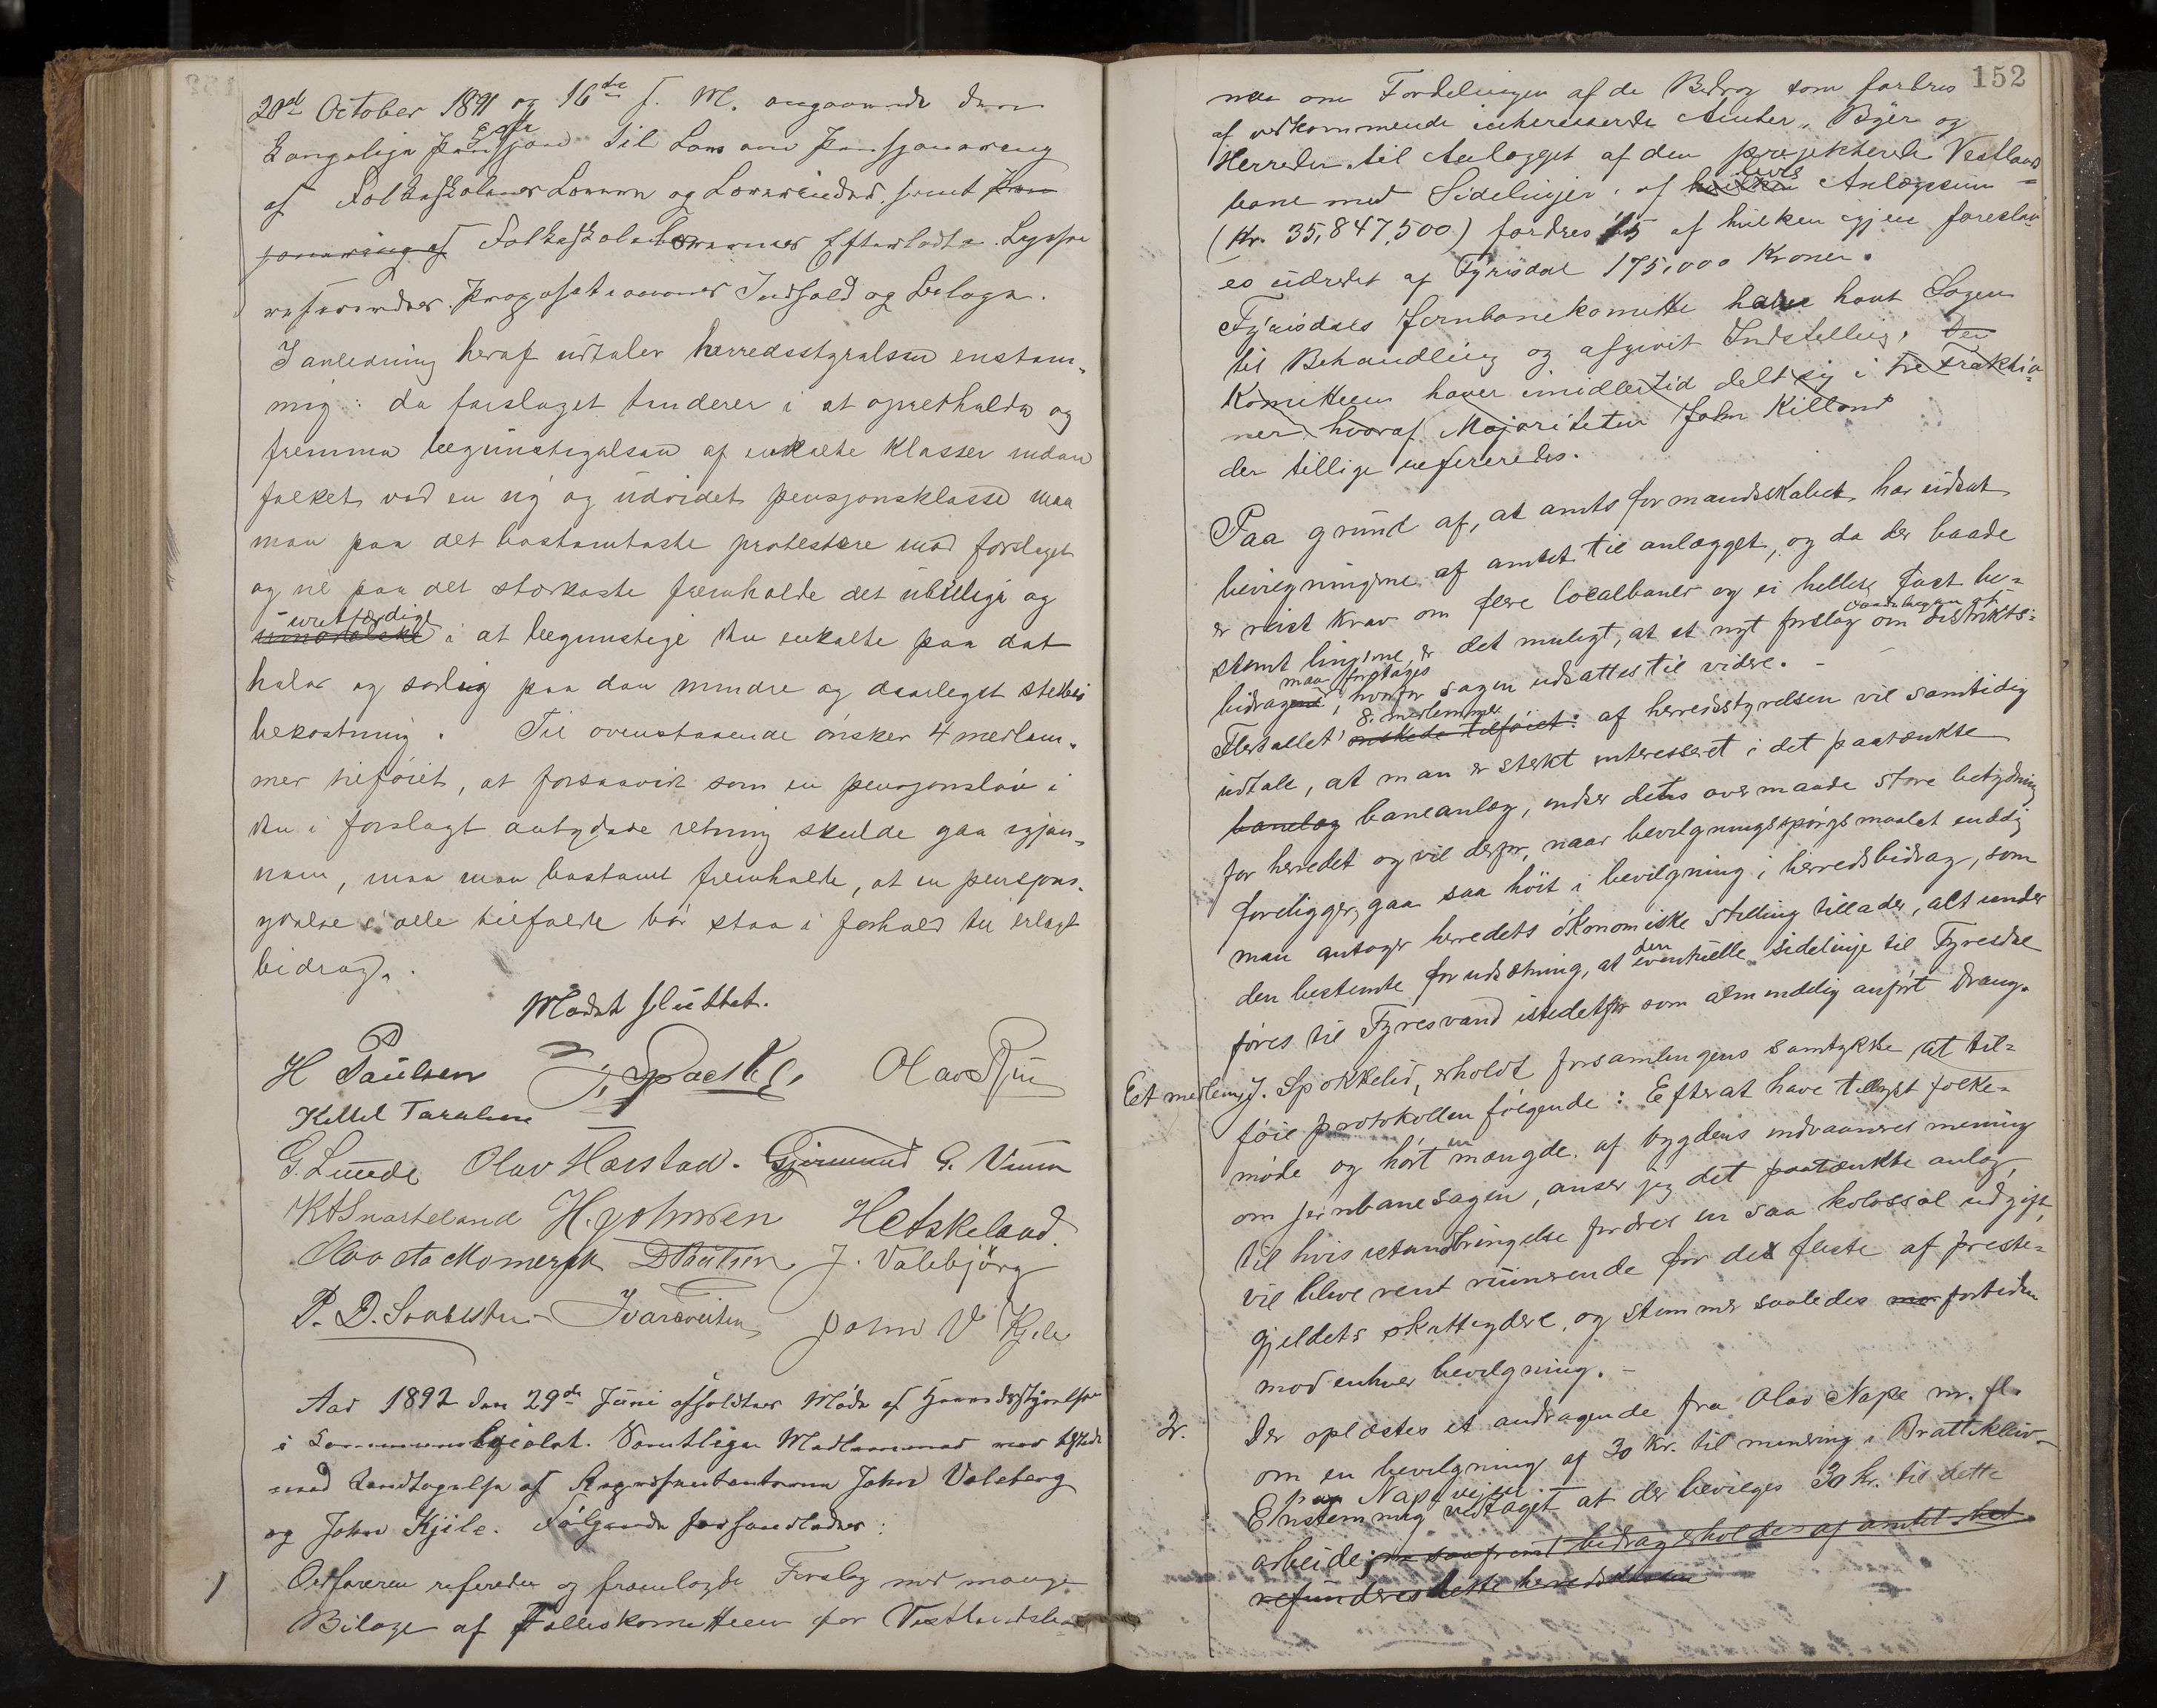 20de October 1891 og 16de f. M. angaaende den
kongelige Prop til Lov om Pensjonering
af Folkeskolens Lærere og Lærerinder samt Pen
sjonering af Folkeskolelærernes Efterladte.
referertes Propositionernes Indhold og Bilage.
I anledning heraf udtaler herredsstyrelsen enstem-
mig: da forslaget tenderer i at opretholde og
fremme begunstigelsen af enkelte klasser inden
folket ved en ny og udvidet pensjonsklasse maa
man paa det bestemteste protestere mod forslaget
og vil paa det sterkeste fremholde det ubillige og
uretfærdige
umoralske i at begunstige den enkelte paa det
heles og særlig paa den mindre og daarligst stelledes
bekostning. Til ovenstaaende ønsker 4 medlem-
mer tilføiet, at forsaavidt som en pensjonslov i
den i forslaget antydede retning skulde gaa igjen-
nem, maa man bestemt fremholde, at en pensjons-
ydelse i alle tilfælde bør staa i forhold til erlagt
bidrag.
Mødet sluttet.
H Paulsen J. Spokkeli Olav Tjøn
Kittil Taraldsen
G. Lunde Olav Harstad. Gjermund G. Veum
K A Snarteland H. Johnsen H Askeland.
Olav Momerak D Paulsen J. Valebjørg
P. D. Ivarsveiten John V Kjile
Aar 1892 den 29de Juni afholdtes Møde af Herredsstyrelsen
i Kommunelokalet. Samtlige Medlemmer var tilstede
med Undtagelse af Repræsentanterne John Valeberg
og John Kjile. Følgende forhandledes:
1 Ordføreren refererte og fremlagde Forslag med mange
Bilage af Felleskomitteen for Vestlandsba
152
nen om Fordelingen af de Bidrag som fordres
af vedkommende interesserede Amter, Byer og
Herreder til Anlægget af den projekterede Vestlands-
bane med Sidelinjer, af hvis Anlægssum
(Kr. 35,847,500) fordres 15 af hvilken igjen foreslaa-
es udredet af Fyrisdal 175,000 Kroner.
Fyrisdals Jernbanekomitte have havt Sagen
til Behandling og afgivit Indstilling, Den
Komitteen haver imidlertid delt sig i tre Fraktio-
ner hvoraf Majoriteten John Killand
der tillige refereredes.
Paa grund af, at amtsformandsskabet har udsat
bevilgningerne af amtet til anlægget, og da der baade
er reist krav om flere localbaner og ei heller fast be-
stemt lingerne, er det muligt, at et nyt forslag om distrikts-
maa foretages
bidragene, hvorfor sagen udsættes til videre. –
8 medlemmer
Flertallet ønskede tilføiet: af herredsstyrelsen vil samtidig
udtale, at man er sterkt interesseret i det paatænkte
banelag baneanlæg, indser dets overmaade store betydning
for herredet og vil derfor, naar bevilgningsspørgsmaalet endelig
foreligger, gaa saa høit i bevilgning i herredsbidrag, som
man antager herredets økonomiske stilling tillader, alt under
den bestemte forudsætning, at den eventuelle sidelinje til Fyresdal
føres til Fyresvand istedetfor som almindelig anført Drang.
Eet medlem, J. Spokkeli, erholdt forsamlingens samtykke at til-
føie protokollen følgende: Efter at have tillyst folke-
møde og hørt en mængde af bygdens indvaaneres mening
om jernbanesagen, anser jeg det paatænkte anlæg,
til hvis istandbringelse fordres en saa kolossal udgift,
vil blive rent ruinerende for det fleste af preste-
gjeldets skatteydere, og stemmer saaledes fortiden
mod enhver bevilgning. –
2. Der oplæstes et andragende fra Olav Nape m. fl.
om en bevilgning af 30 Kr. til minering i Brattekleiv
paa Napevejen.
Enstemmig vedtaget at der bevilges 30 kr. til dette
arbeide, saafremt bidrag erholdes af amtet skal
refunderes dette herredskassen